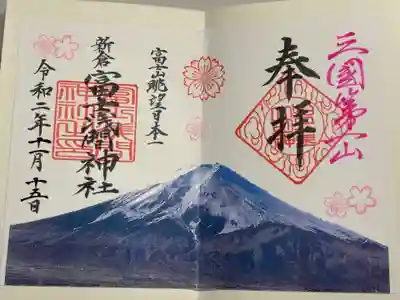 三國第一山
奉拝
富士山眺望日本一
新倉富士浅間神社
令和二年十一月十五日